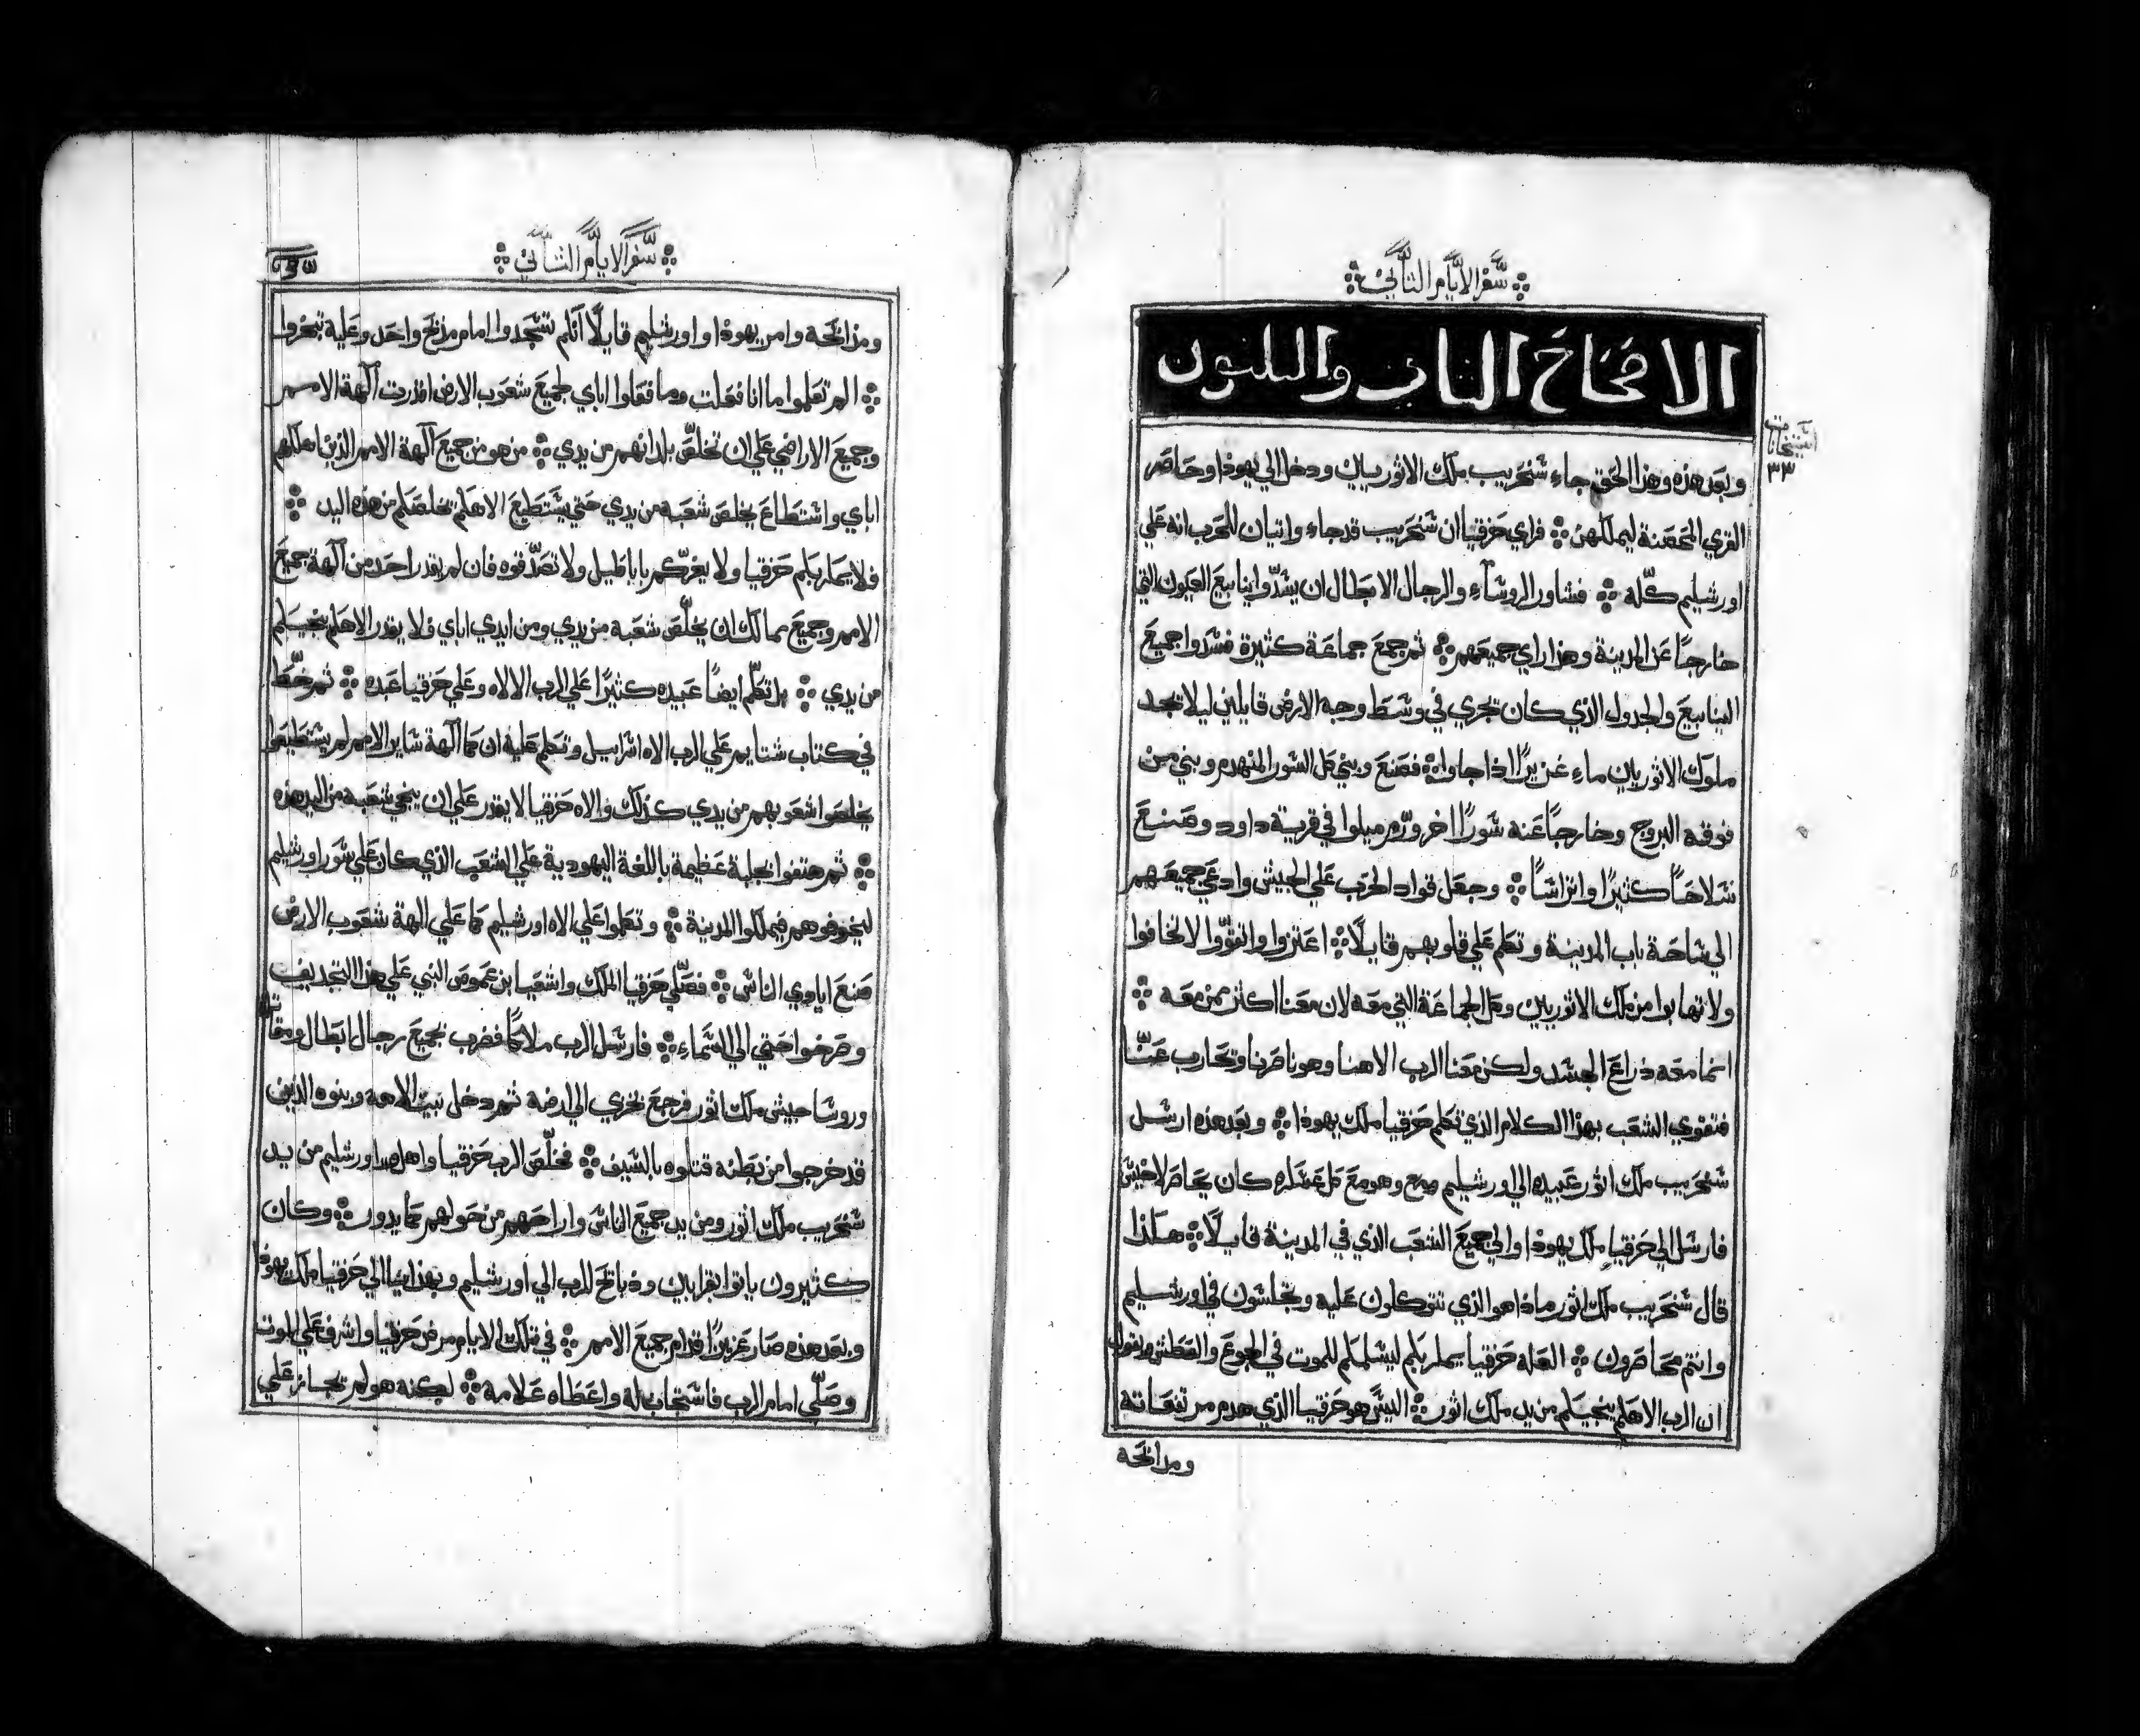 سفر الايام الثاني
الاصحاح الثاني والثلثون
وبعد هذه وهذا الحق جاء سنحريب ملك الاثوريين ودخل الي يهوذا وحاصر
القري المحصنة ليملكهن ܀ فراي حزقيا ان سنحريب قد جاء واتيان للحرب انه علي
اورشليم كله ܀ فشاور الروساء والرجال الابطال ان يسدوا ينابيع العيون التي
خارجاً عن المدينة وهذا راي جميعهم ܀ ثم جمع جماعة كثيرة فسدوا جميع
الينابيع والجدول الذي كان تجري في وسط وجه الارض قايلين ليلا تجد
ملوك الاثوريين ماء غزيراً اذا جاوا ܀ فصنع وبني كل السور المنهدم وبني من
فوقه البروج وخارجاً عنه سوراً اخر ورمم ميلوا في قرية داود وصنع
سلاحاً كثيراً واتراساً ܀ وجعل قواد الحرب علي الجيش وادعي جميعهم
الي ساحة باب المدينة وتكلم علي قلوبهم قايلاً ܀ اعتزوا واتقووا لا تخافوا
ولا تهابوا من ملك الاثوريين وكل الجماعة التي معه لان معنا اكثر ممن معه ܀
انما معه ذراع الجسد ولكن معنا الرب الاهنا وهو ناصرنا وتحارب عنا
فتقوي الشعب بهذا الكلام الذي تكلم حزقيا ملك يهوذا ܀ وبعد هذه ارسل
سنحريب ملك اثور عبيده الي اورشليم وهو مع كل عسكره كان يحاصر لاخيش
فارسل الي حزقيا ملك يهوذا والي جميع الشعب الذي في المدينة قايلاً ܀ هكذا
قال سنحريب ملك اثور ماذا هو الذي تتوكلون عليه وتجلسون في اورشليم
وانتم محاصرون ܀ العله حزقيا يمكر بكم ليسلمكم للموت في الجوع والعطش ويقول
ان الرب الاهكم ينجيكم من يد ملك اثور ܀ اليس هو حزقيا الذي هدم مرتفعاته
ومذابحه
٣٣
سفر الايام الثاني
ومذابحه وامر يهوذا واورشليم قايلاً انكم تسجدوا امام مذبح واحد وعليه تبخروا
܀ الم تعلموا ما انا فعلت وما فعلوا اباي لجميع شعوب الارض اقدرت آلهة الامم
وجميع الاراضي علي ان تخلص بلدانهم من يدي ܀ من هو من جميع آلهة الامم الذين اهلكهم
اباي واستطاع يخلص شعبه من يدي حتي يستطيع الاهكم تخلصكم من هذه اليد ܀
فلا يمكر بكم حزقيا ولا يغركم باباطيل ولا تصدقوه فان لم يقدر احد من آلهة جميع
الامم وجميع ممالك ان يخلص شعبه من يدي ومن ايدي اباي فلا يقدر الاهكم ينجيكم
من يدي ܀ بل تكلم ايضاً عبيده كثيراً علي الرب الالاه وعلي حزقيا عبده ܀ ثم خط
في كتاب شتايم علي الرب الاه اسراييل وتكلم عليه ان كما آلهة ساير الامم لم يستطيعوا
يخلصوا شعوبهم من يدي كذلك والاه حزقيا لا يقدر علي ان ينجي شعبه من اليد هذه
܀ ثم هتفوا بجلبة عظيمة باللغة اليهودية علي الشعب الذي كان علي سور اورشليم
ليخوفوهم فيملكوا المدينة ܀ وتكلموا علي الاه اورشليم كما علي الهة شعوب الارض
صنع اياوي الناس ܀ فصلي حزقيا الملك واشعيا بن عموص النبي علي هذا التجديف
وصرخوا حتي الي السماء ܀ فارسل الرب ملاكاً فضرب بجميع رجال ابطال ومقاتلة
وروسا جيش ملك اثور فرجع بخزي الي ارضه ثم دخل بيت الاهه وبنوه الذين
قد خرجوا من بطنه قتلوه بالسيف ܀ فخلص الرب حزقيا واهل اورشليم من يد
سنحريب ملك اثور ومن يد جميع الناس واراحهم من حولهم كما يدور ܀ وكان
كثيرون ياتوا بقرابين وذبائح للرب الي اورشليم وبهدايا الي حزقيا ملك يهوذا
وبعد هذه صار عزيزاً قدام جميع الامم ܀ في تلك الايام مرض حزقيا واشرف علي الموت
وصلي امام الرب فاستجاب له واعطاه علامة ܀ لكنه هو لم تجاز علي